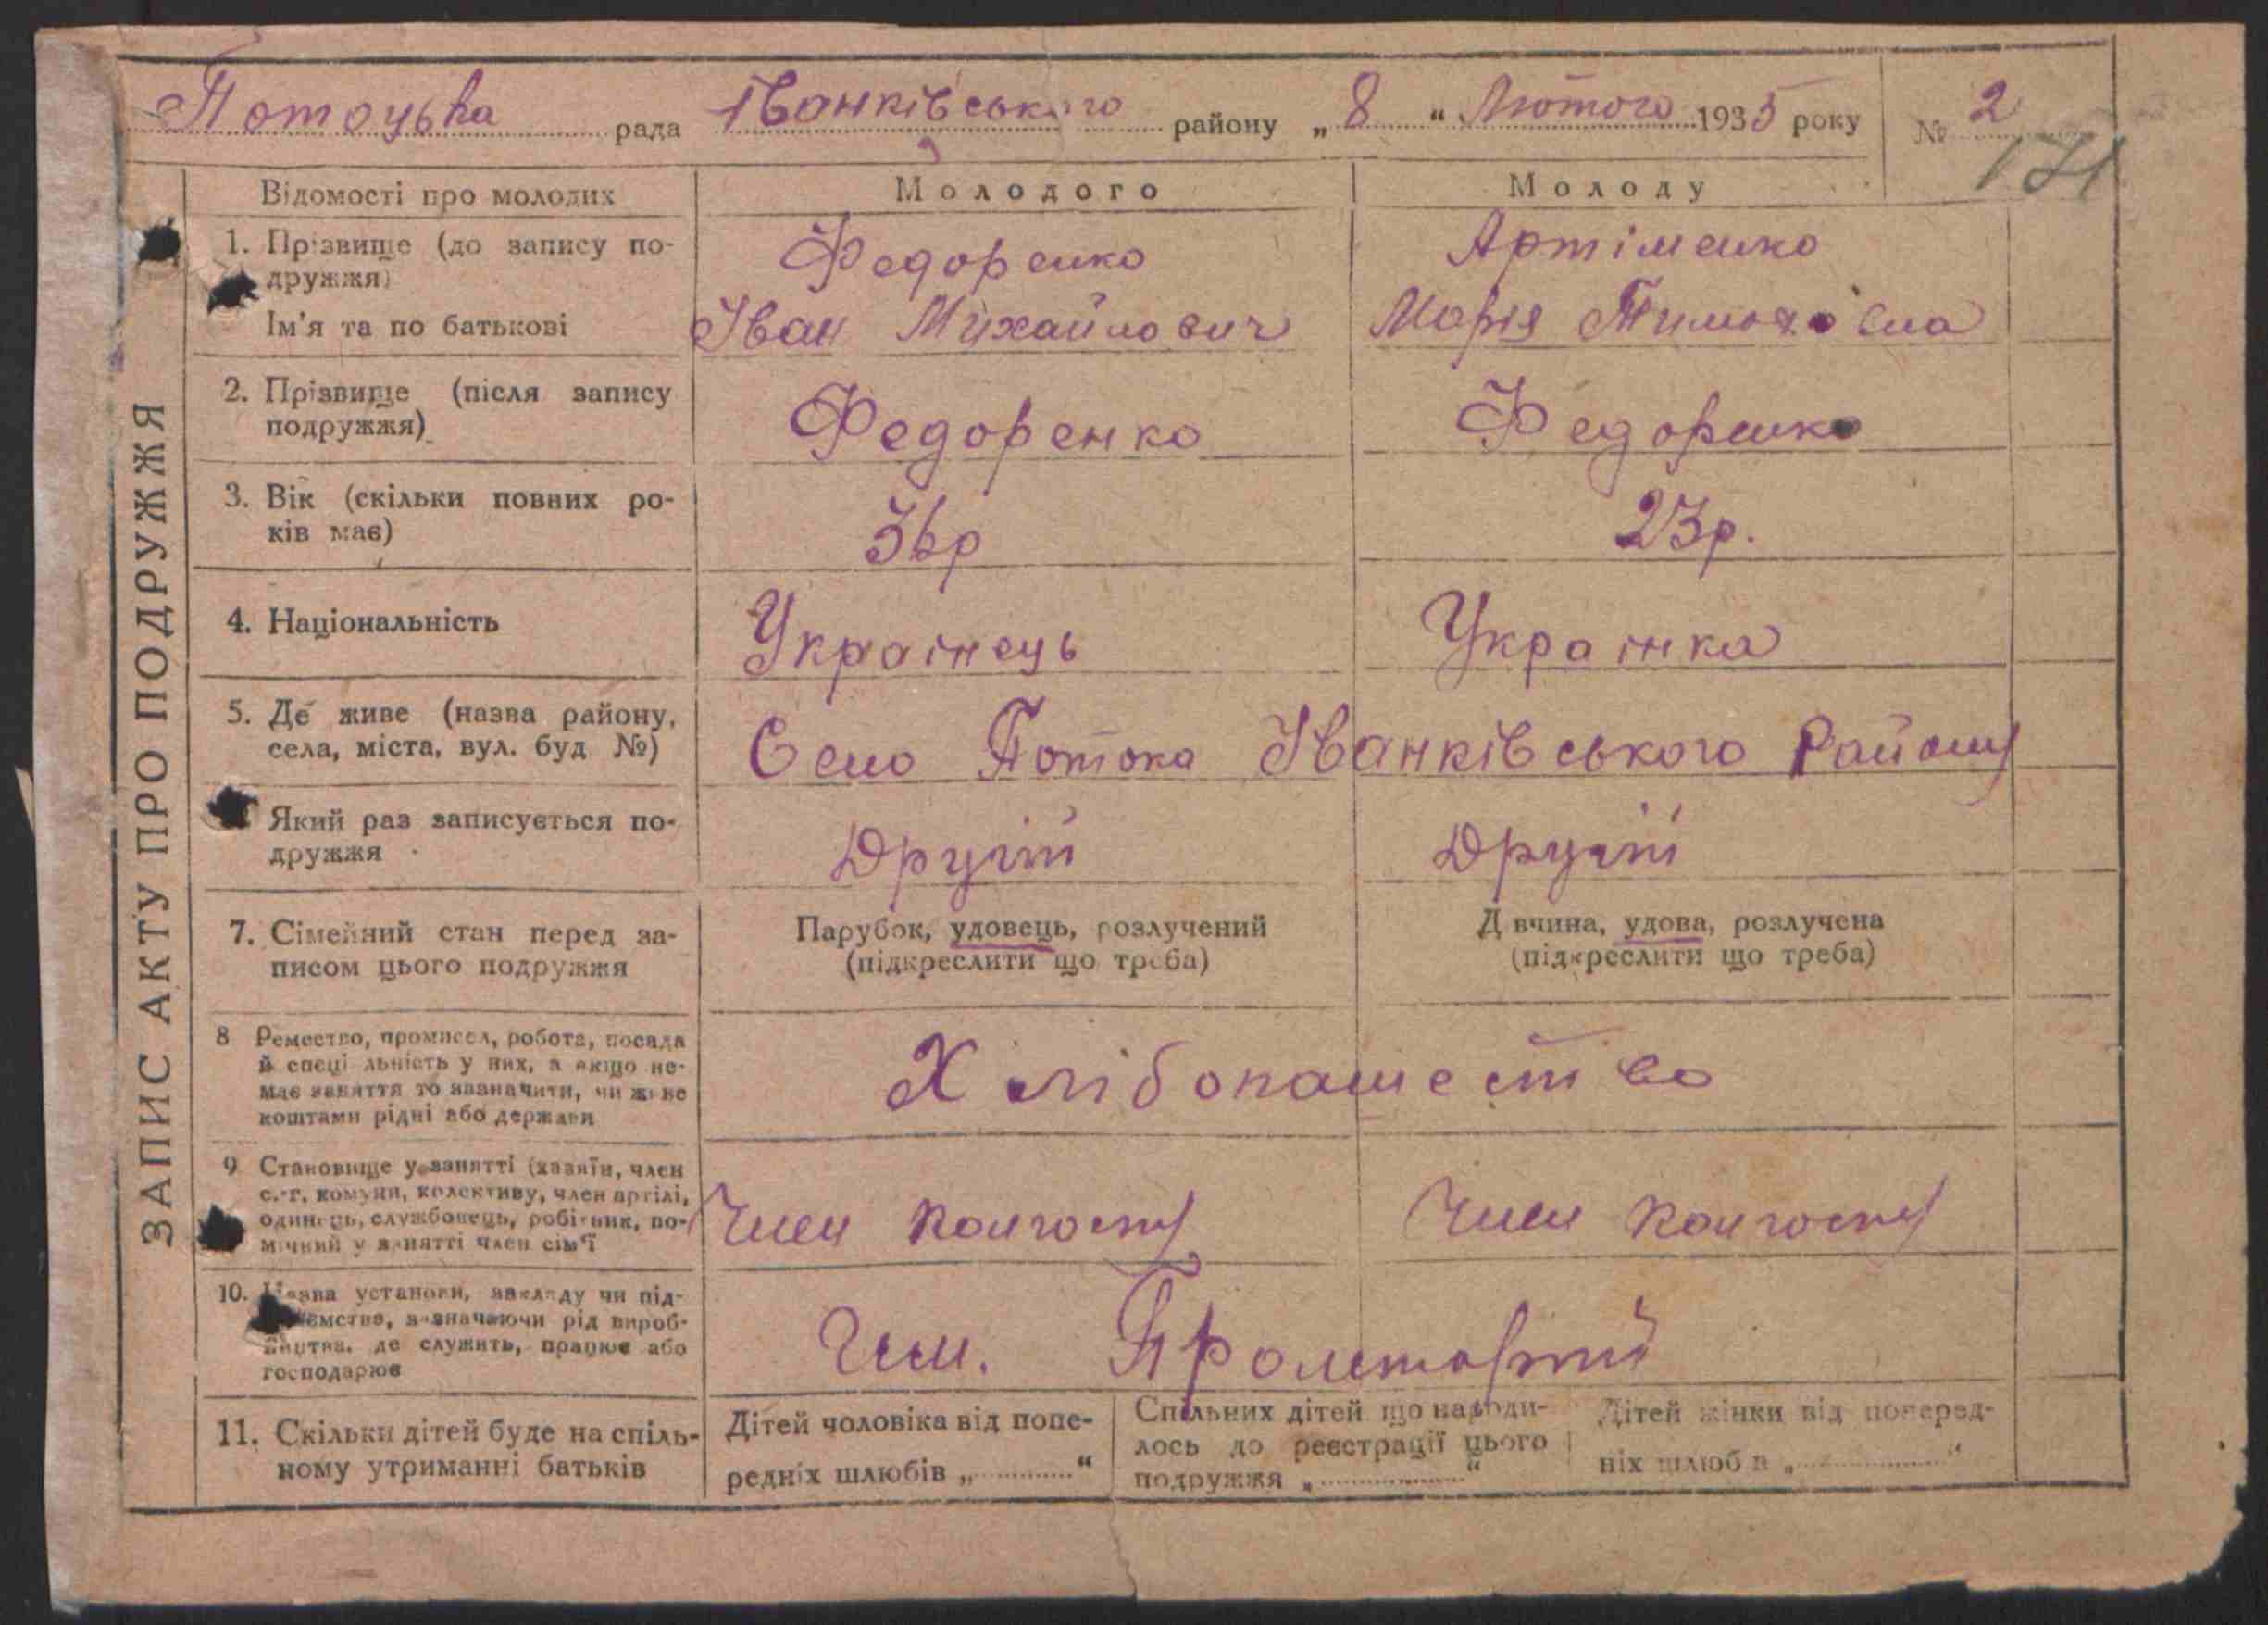 Потоцька рада Іванківського району „ 8 “ Лютого 1935 року № 2
171
ЗАПИС АКТУ ПРО ПОДРУЖЖЯ
Відомості про молодих Молодого Молоду
1. Прізвище (до запису по-
дружжя) Федоренко Артіменко
Ім'я та по батькові Іван Михайлович Марія
2. Прізвище (після запису
подружжя) Федоренко Федоренко
3. Вік (скільки повних ро-
ків має) 36р 23р.
4. Національність Украінець Украінка
5. Де живе (назва району,
села, міста, вул. буд №) Село Потока Іванківського Району
Який раз записується по-
дружжя Другій Другій
7. Сімейний стан перед за-
писом цього подружжя
Парубок, удовець, розлучений
(підкреслити що треба)
Д вчина, удова, розлучена
(підкреслити що треба)
8 Ремество, промисел, робота, посада
й спеці льність у них, а якщо не-
має заняття то зазначити, чи живе
коштами рідні або держави
Хлібопашество
9 Становище у занятті (хазяїн, член
с.-г. комуни, колективу, член артілі,
одинець, службовець, робітник, по-
мічний у занятті член сім'ї
Член колгоспу Член колгоспу
10. Назва установи, закладу чи під-
ємства, зазначаючи рід вироб-
ництва, де служить, працює або
господарює
11. Скільки дітей буде на спіль-
ному утриманні батьків
Дітей чоловіка від попе-
редніх шлюбів „ “
Спільних дітей що народи-
лось до реєстрації цього
подружжя „ “
Дітей жінки від поперед-
ніх шлюб в „ “